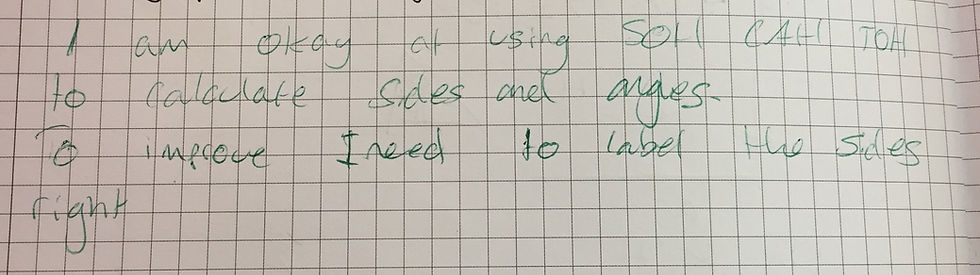 I am okay at using SOH CAH TOH
to calculate sides and angles.
To improve I need to label the sides
right